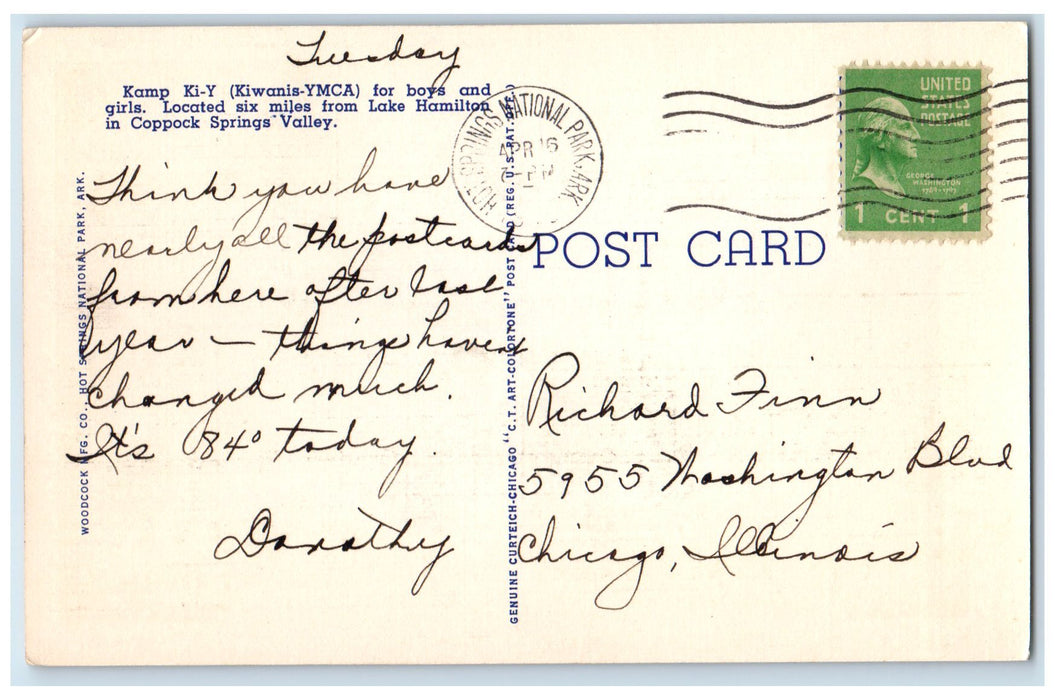 Tuesday
Kamp Ki-Y (Kiwanis-YMCA) for boys and
girls. Located six miles from Lake Hamilton
in Coppock Springs Valley.
Think you have
nearly all the postcards
from here after last
year — things haven't
changed much.
It's 84° today.
Dorothy
WOODCOCK MFG. CO., HOT SPRINGS NATIONAL PARK, ARK.
GENUINE CURTEICH-CHICAGO "C.T. ART-COLORTONE" POST CARD (REG. U.S. PAT. OFF.)
HOT SPRINGS NATIONAL PARK, ARK.
APR 16
PM
UNITED
STATES
POSTAGE
GEORGE
WASHINGTON
1789-1797
1 CENT 1
POST CARD
Richard Finn
5955 Washington Blvd
Chicago, Illinois